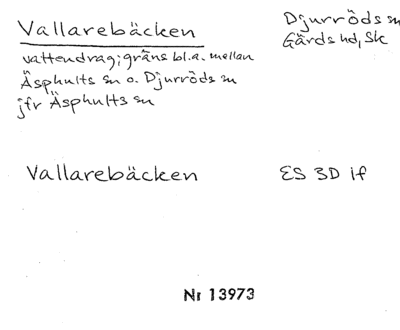 Vallarebäcken
Djurröds sn
Gärds hd, Sk
vattendrag; gräns bl.a. mellan
Äsphults sn o. Djurröds sn
jfr Äsphults sn
Vallarebäcken
ES 3D if
Nr 13973